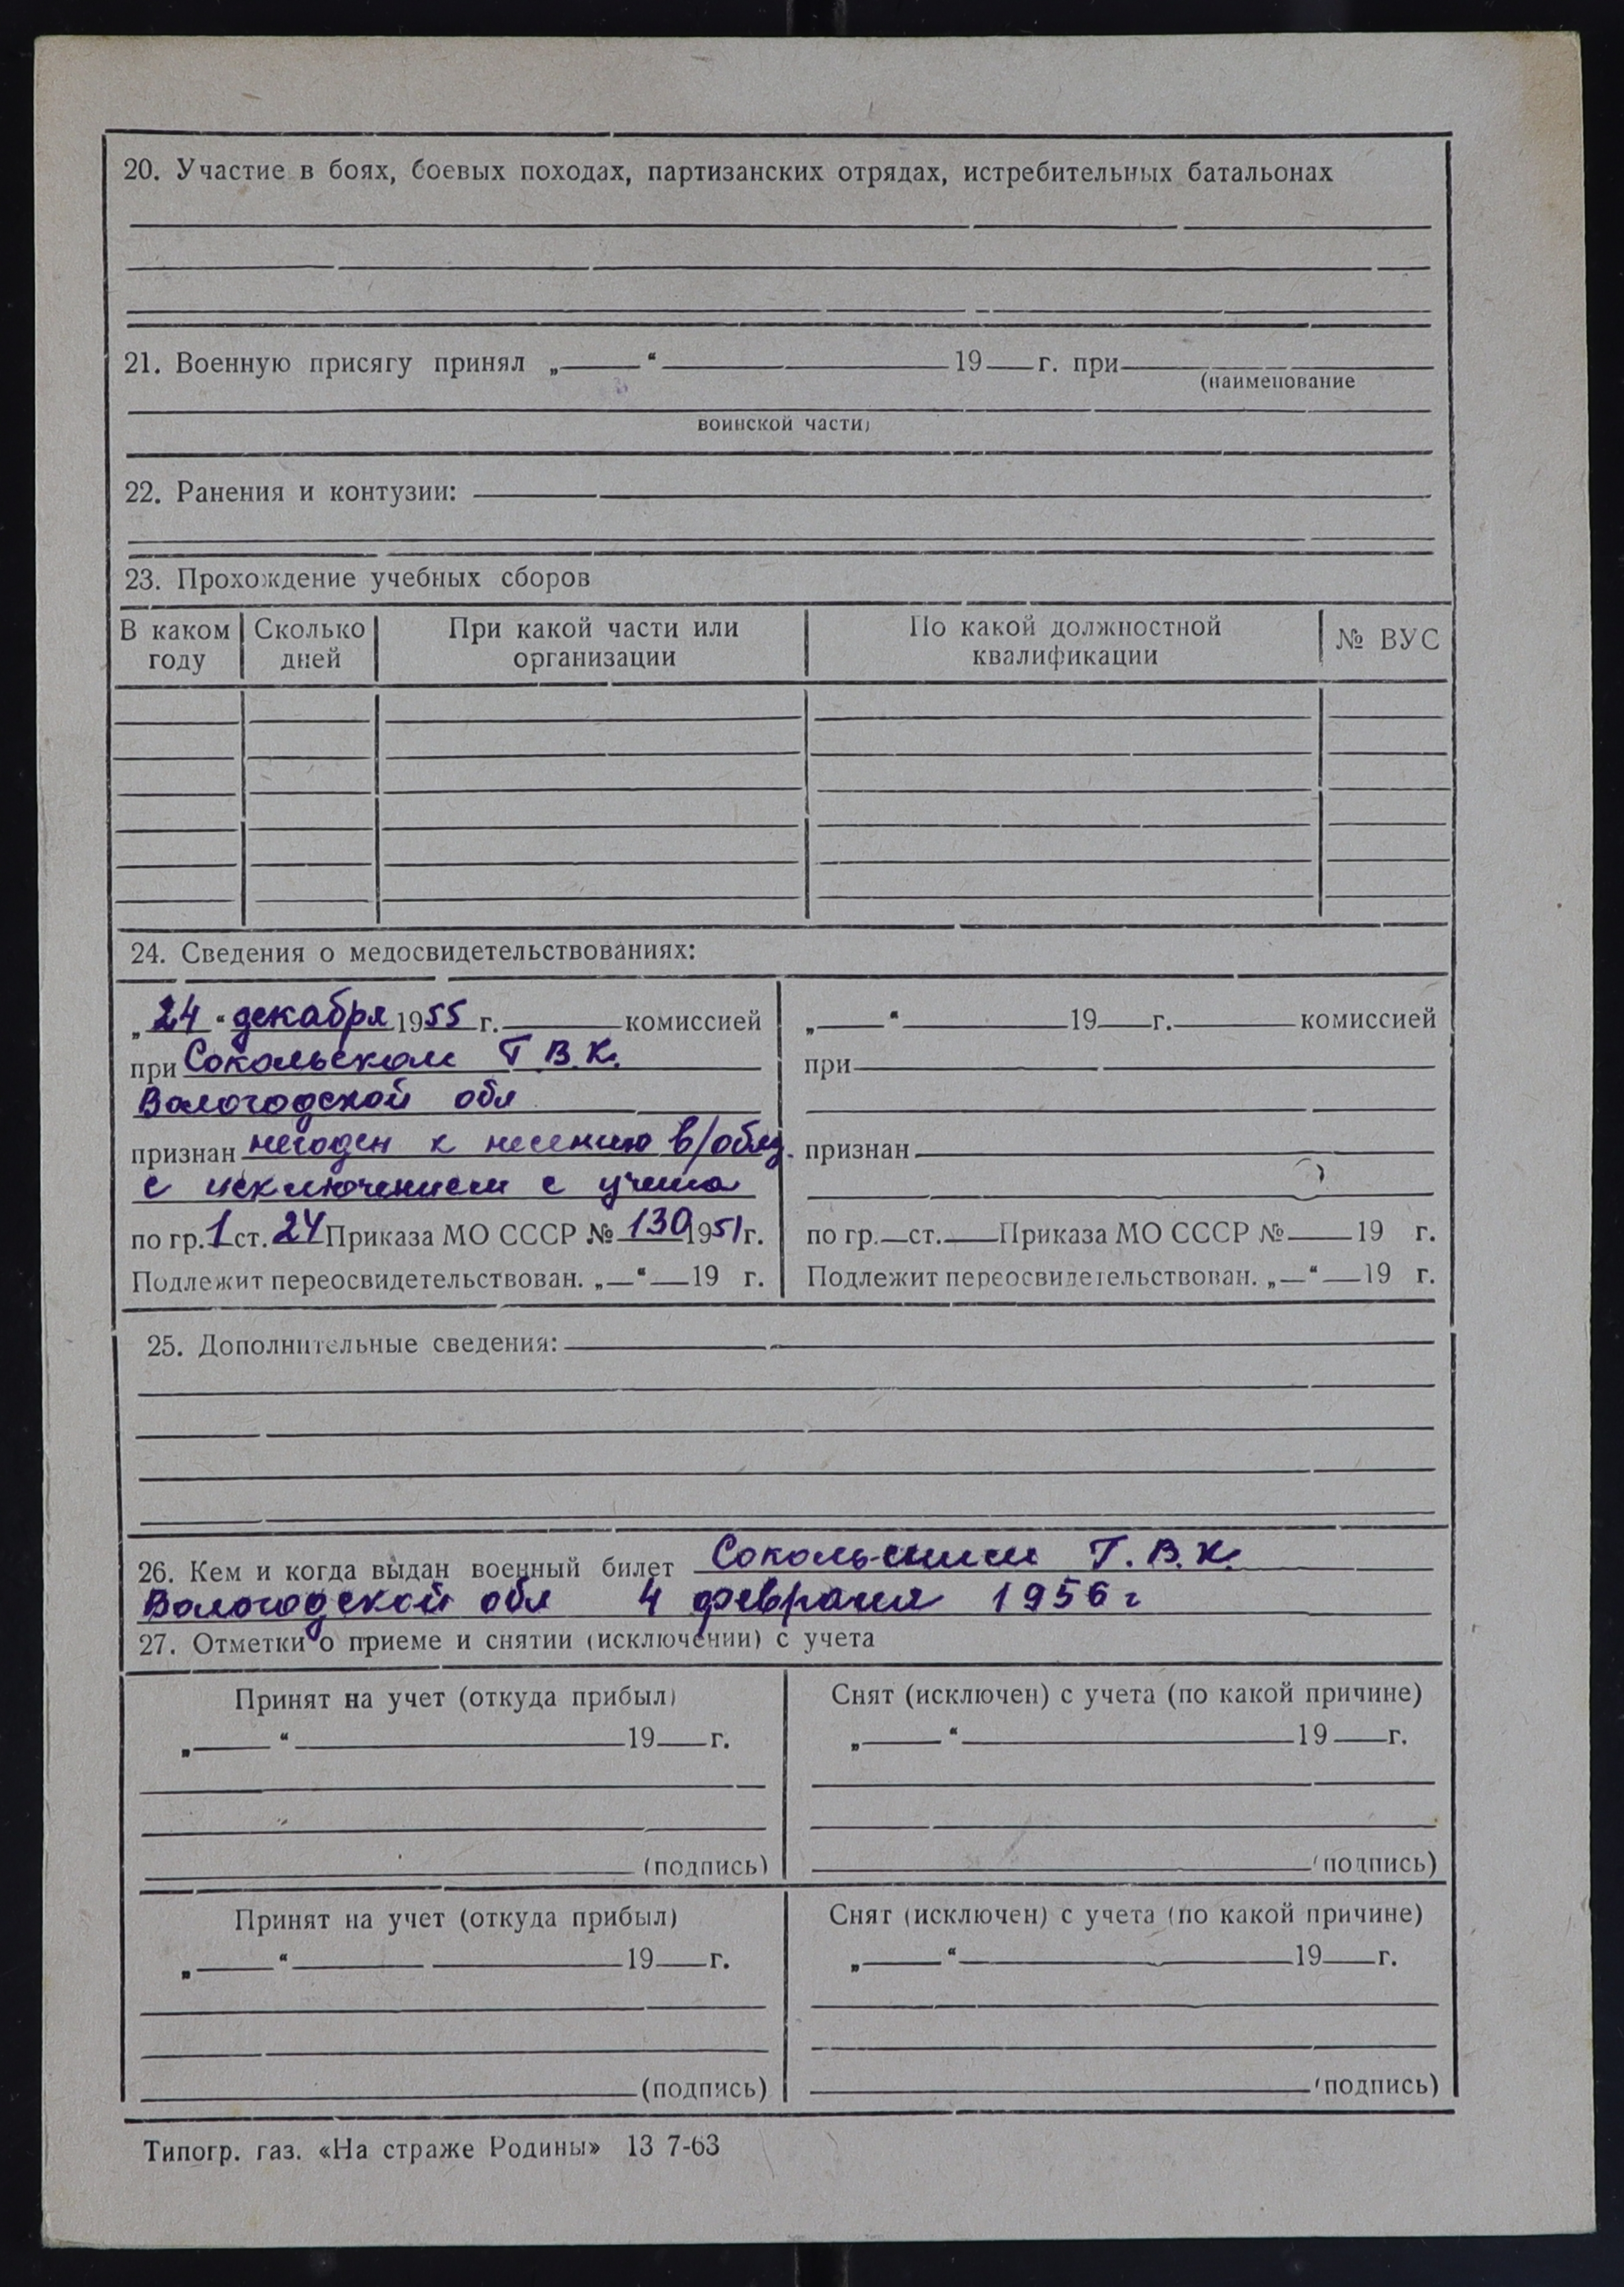 20. Участие в боях, боевых походах, партизанских отрядах, истребительных батальонах
21. Военную присягу принял „ “ 19 г. при
(наименование
воинской части)
22. Ранения и контузии:
23. Прохождение учебных сборов
В каком году | Сколько дней | При какой части или организации | По какой должностной квалификации | № ВУС
24. Сведения о медосвидетельствованиях:
„24“ декабря 1955 г. комиссией
при Сокольском Г.В.К.
Вологодской обл
признан негоден к несению в/обяз.
с исключением с учета
по гр. 1 ст. 24 Приказа МО СССР № 130 1951 г.
Подлежит переосвидетельствован. „ “ 19 г.
„ “ 19 г. комиссией
при
признан
по гр. ст. Приказа МО СССР № 19 г.
Подлежит переосвидетельствован. „ “ 19 г.
25. Дополнительные сведения:
26. Кем и когда выдан военный билет Сокольским Г.В.К.
Вологодской обл 4 февраля 1956 г
27. Отметки о приеме и снятии (исключении) с учета
Принят на учет (откуда прибыл)
„ “ 19 г.
(подпись)
Снят (исключен) с учета (по какой причине)
„ “ 19 г.
(подпись)
Принят на учет (откуда прибыл)
„ “ 19 г.
(подпись)
Снят (исключен) с учета (по какой причине)
„ “ 19 г.
(подпись)
Типогр. газ. «На страже Родины» 13 7-63